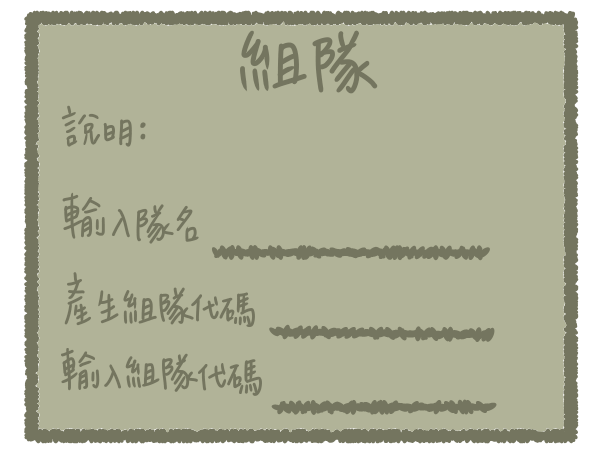 組隊
說明:
輸入隊名
產生組隊代碼
輸入組隊代碼